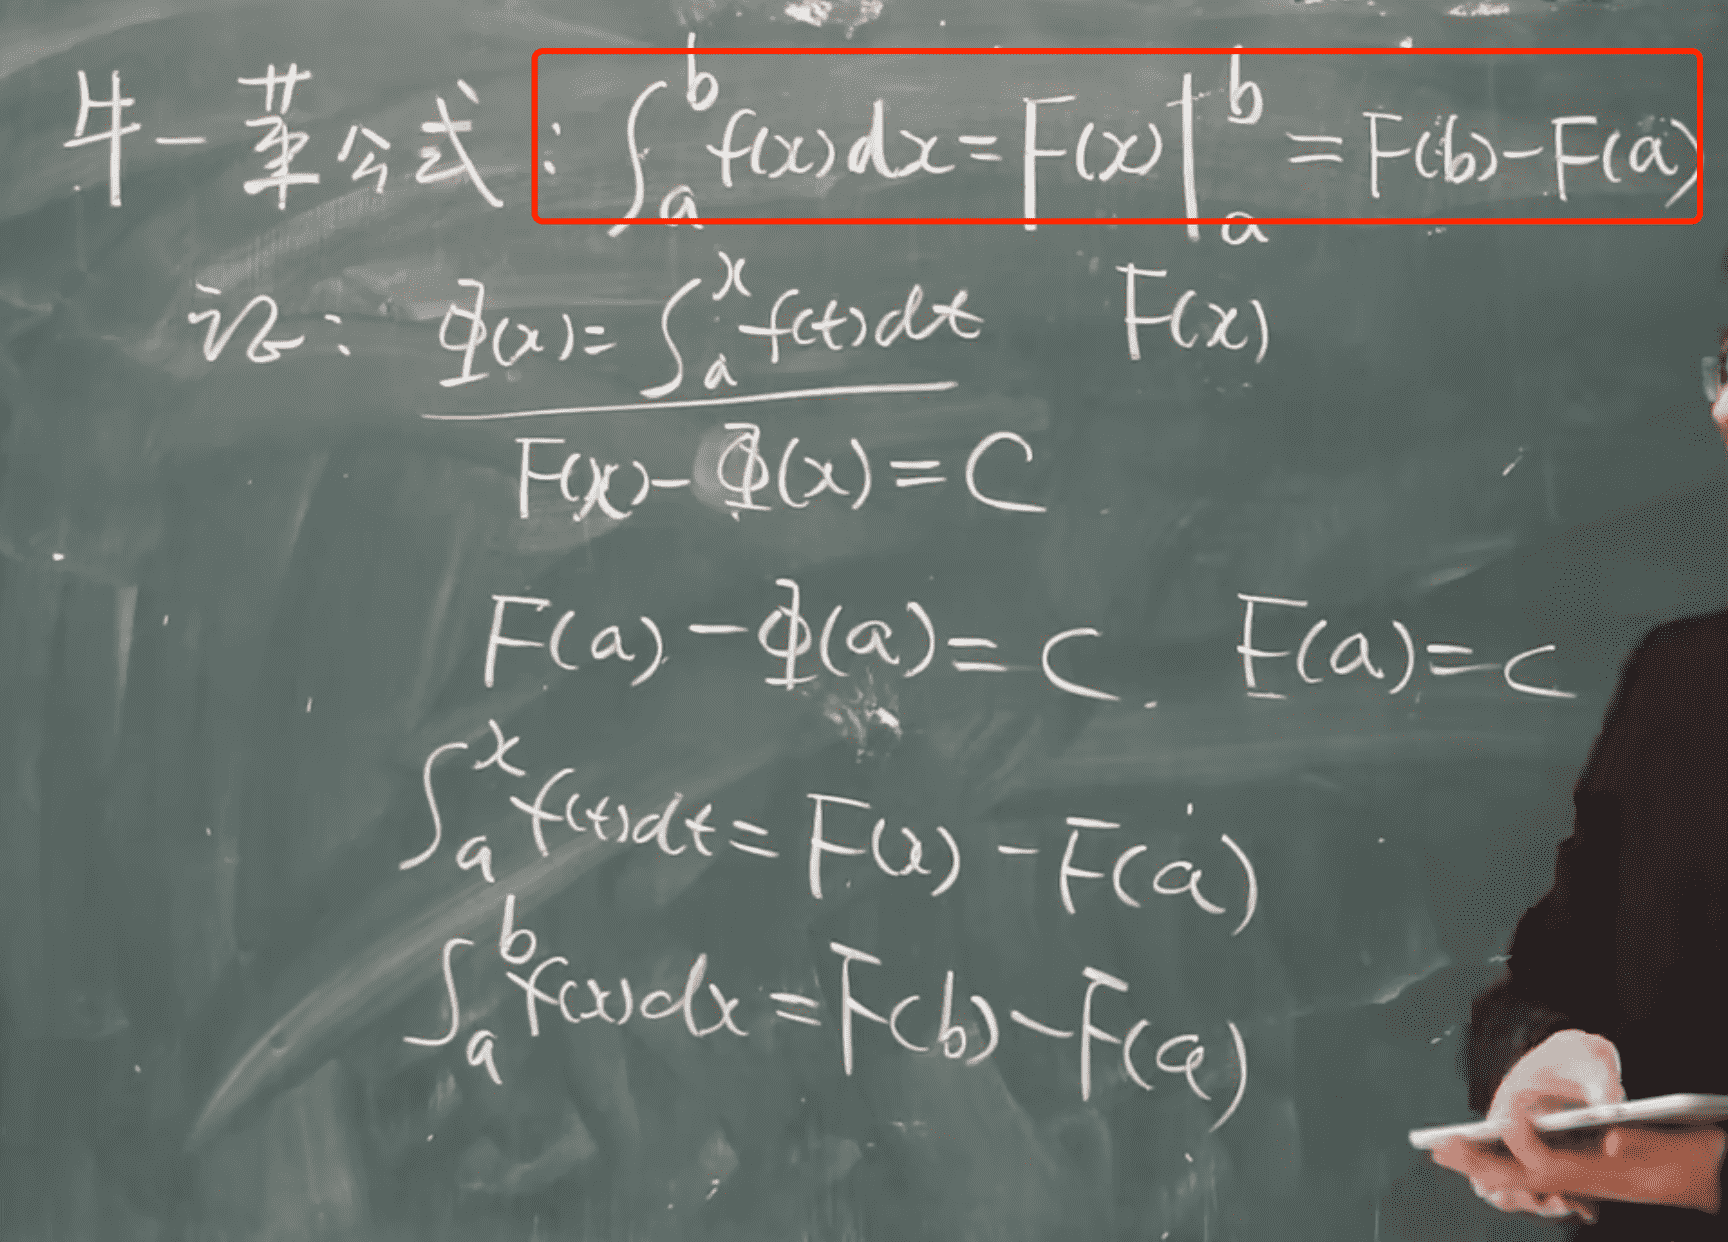 牛-莱公式: ∫_a^b f(x)dx = F(x)|_a^b = F(b)-F(a)
证: Φ(x)= ∫_a^x f(t)dt F(x)
F(x)-Φ(x)=C
F(a)-Φ(a)=C. F(a)=C
∫_a^x f(t)dt=F(x)-F(a)
∫_a^b f(x)dx=F(b)-F(a)